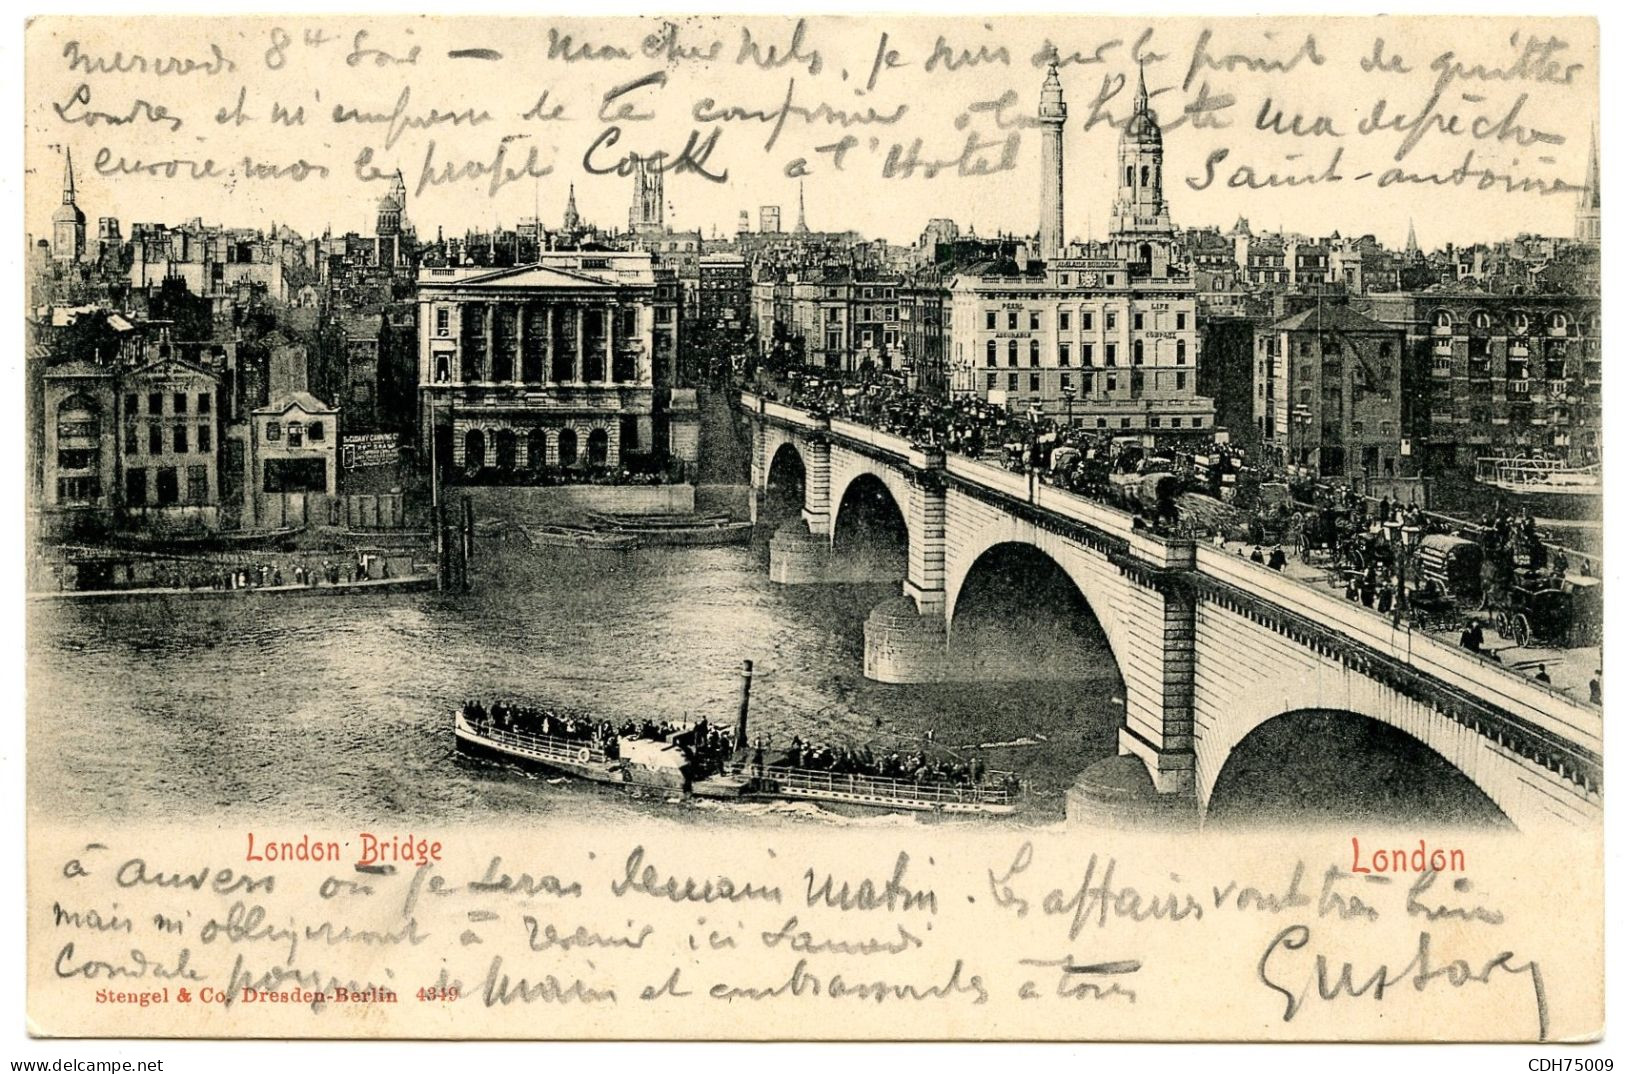 Mercredi 8 H Soir — Mon cher Nels, je suis sur le point de quitter
Londres et m'empresse de te confirmer à la hâte ma dépêche
envoie moi le projet Cock à l'Hotel Saint-Antoine
ADELAIDE BUILDINGS
PEARL LIFE
ASSURANCE COMPANY
London Bridge
London
à Anvers où je serai demain matin. Les affaires vont très bien
mais m'obligeront à revenir ici Samedi
Cordiale poignée de main et embrassades à tous
Gustave
Stengel & Co, Dresden-Berlin 4349
delcampe.net
CDH75009